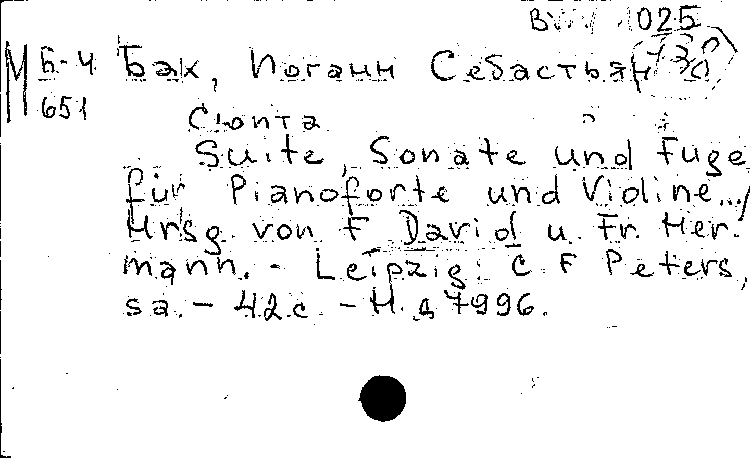 BWV 1025
М Б-4 Бах, Иоганн Себастьян
651
Сюита
Suite, Sonate und Fuge
für Pianoforte und Violine.../
Hrsg. von F. David u. Fr. Her-
mann. - Leipzig: C. F. Peters,
sa. - 42 с. - Н. д 7996.